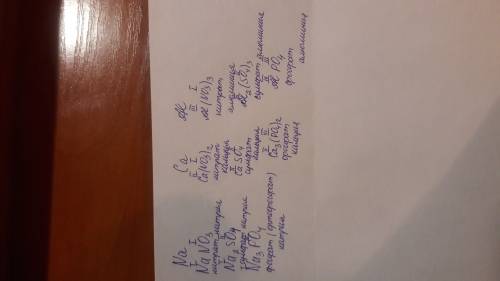 Na
I I
NaNO3
нитрат натрия
I II
Na2SO4
сульфат натрия
I III
Na3PO4
фосфат (ортофосфат)
натрия
Ca
II I
Ca(NO3)2
нитрат
кальция
II II
CaSO4
сульфат
кальция
II III
Ca3(PO4)2
фосфат
кальция
Al
III I
Al(NO3)3
нитрат
алюминия
Al2(SO4)3
сульфат алюминия
III III
AlPO4
фосфат
алюминия